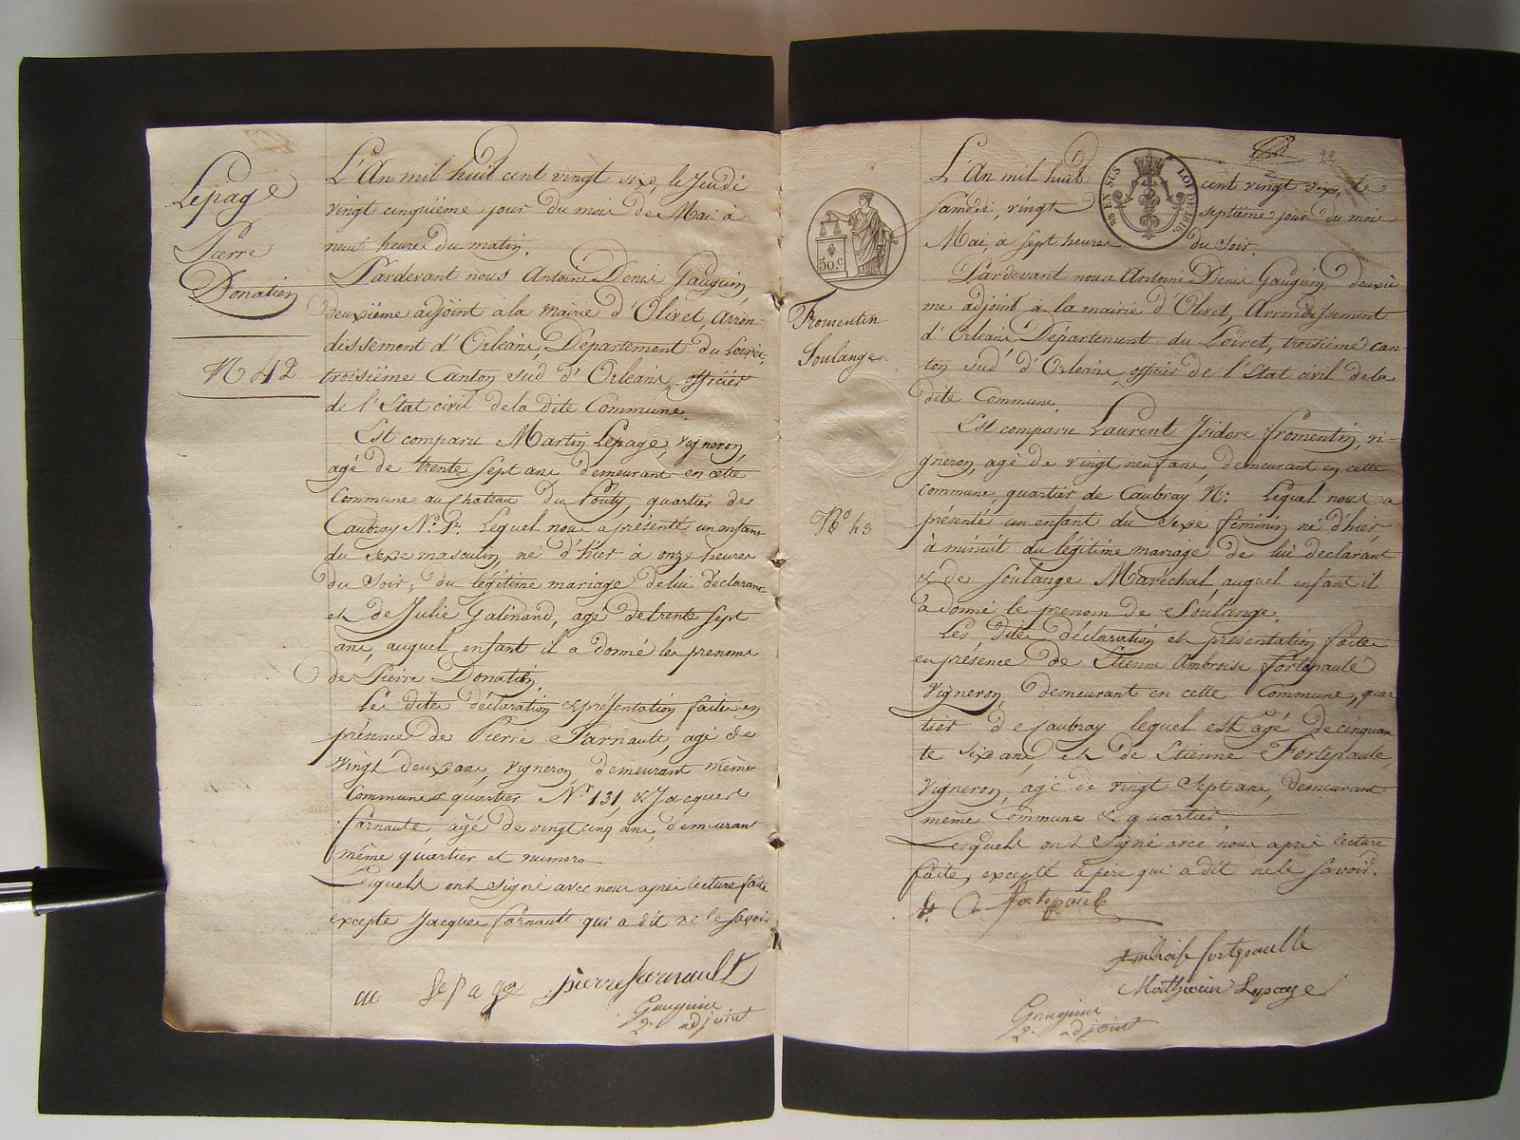 Lepage
Pierre
Donatien
N 42
L'An mil huit cent vingt six, le Jeudi
vingt cinquième jour du mois de Mai à
neuf heures du matin.
Pardevant nous Antoine Denis Gauguin,
deuxième adjoint à la mairie d'Olivet, Arron-
dissement d'Orléans, Département du Loiret,
troisième Canton sud d'Orléans, officier
de l'Etat civil de la dite Commune.
Est comparu Martin Lepage, vigneron,
agé de trente sept ans demeurant en cette
Commune au chateau du Pouty, quartier de
Caubray N°. Lequel nous a présenté un enfant
du sexe masculin, né d'hier à onze heures
du soir, du légitime mariage de lui déclarant
et de Julie Galinand, agé de trente sept
ans, auquel enfant il a donné les prenoms
de Pierre Donatien,
Les dites déclaration et présentation faites en
présence de Pierre Farnault, agé de
vingt deux ans, vigneron, demeurant même
Commune quartier N° 131, & Jacques
farnault agé de vingt cinq ans, demeurant
même quartier et numero
Lesquels ont signé avec nous après lecture faite
excepté Jacques farnault qui a dit ne le savoir
Le Page pierre farnault
Gauguin
2e adjoint
50 c
EN SUS LOI DE 1816
Fromentin
Soulange
N° 43
L'An mil huit cent vingt six, le
samedi, vingt septième jour du mois
Mai, à sept heures du soir.
Pardevant nous Antoine Denis Gauguin, deuxiè
me adjoint à la mairie d'Olivet, Arrondissement
d'Orléans Département du Loiret, troisième can-
ton sud d'Orléans, officier de l'Etat civil de la
dite Commune.
Est comparu Laurent Isidore fromentin, vi-
gneron, agé de vingt neuf ans, demeurant en cette
commune, quartier de Caubray N°: Lequel nous a
présenté un enfant du sexe feminin né d'hier
à minuit du légitime mariage de lui déclarant
& de Soulange Maréchal, auquel enfant il
à donné le prenom de Soulange.
Les dites déclaration et présentation faites
en présence de Etienne Ambroise fortepaulle
vigneron, demeurant en cette Commune, quar
tier de Caubray lequel est âgé de cinquan
te six ans, et de Etienne Fortepaule,
vigneron, agé de vingt sept ans, demeurant
même Commune & quartier
Lesquels ont signé avec nous après lecture
faite, excepté le père qui a dit ne le savoir.
fortepaule
Ambroise fortepaulle
Mathurin Lepage
Gauguin
2e adjoint